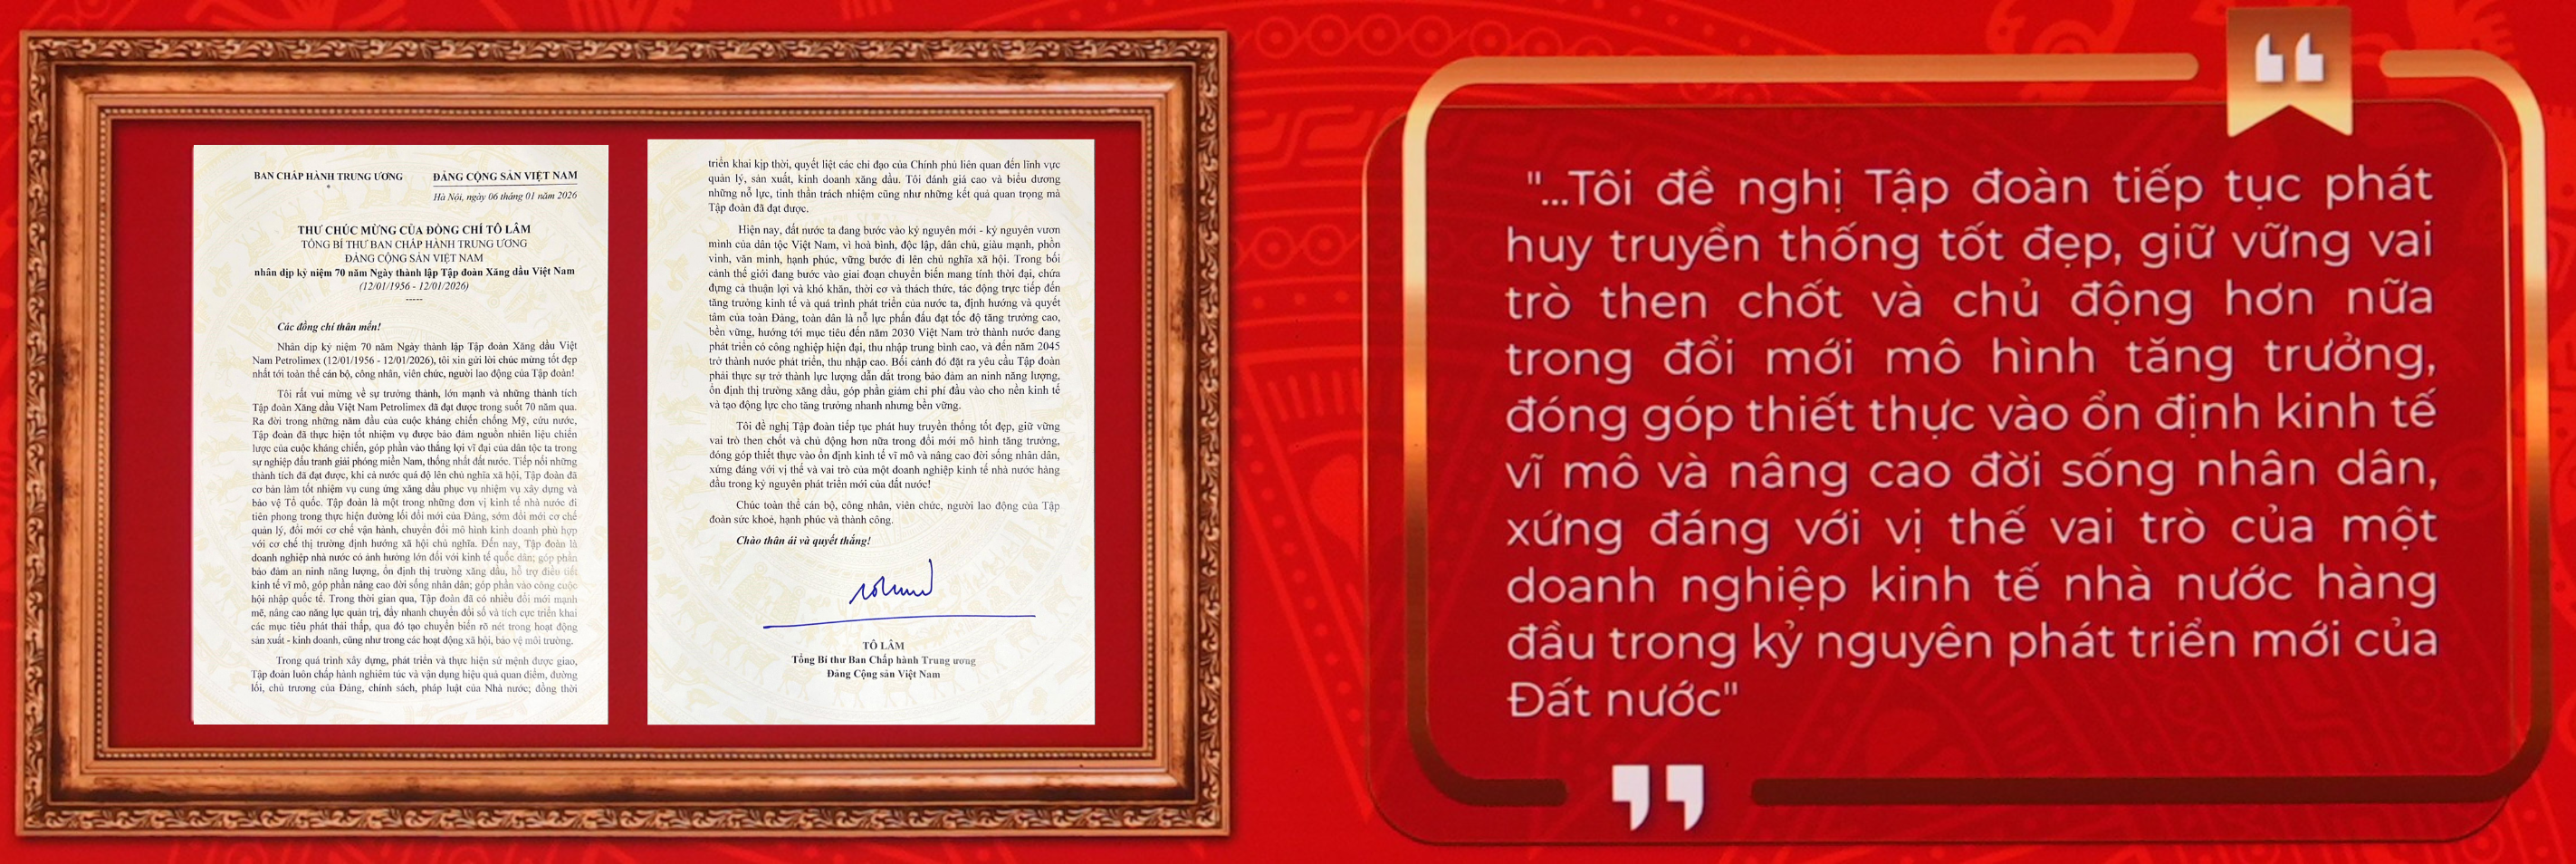 BAN CHẤP HÀNH TRUNG ƯƠNG
*
ĐẢNG CỘNG SẢN VIỆT NAM
Hà Nội, ngày 06 tháng 01 năm 2026
THƯ CHÚC MỪNG CỦA ĐỒNG CHÍ TÔ LÂM
TỔNG BÍ THƯ BAN CHẤP HÀNH TRUNG ƯƠNG
ĐẢNG CỘNG SẢN VIỆT NAM
nhân dịp kỷ niệm 70 năm Ngày thành lập Tập đoàn Xăng dầu Việt Nam
(12/01/1956 - 12/01/2026)
-----
Các đồng chí thân mến!
Nhân dịp kỷ niệm 70 năm Ngày thành lập Tập đoàn Xăng dầu Việt
Nam Petrolimex (12/01/1956 - 12/01/2026), tôi xin gửi lời chúc mừng tốt đẹp
nhất tới toàn thể cán bộ, công nhân, viên chức, người lao động của Tập đoàn!
Tôi rất vui mừng về sự trưởng thành, lớn mạnh và những thành tích
Tập đoàn Xăng dầu Việt Nam Petrolimex đã đạt được trong suốt 70 năm qua.
Ra đời trong những năm đầu của cuộc kháng chiến chống Mỹ, cứu nước,
Tập đoàn đã thực hiện tốt nhiệm vụ được bảo đảm nguồn nhiên liệu chiến
lược của cuộc kháng chiến, góp phần vào thắng lợi vĩ đại của dân tộc ta trong
sự nghiệp đấu tranh giải phóng miền Nam, thống nhất đất nước. Tiếp nối những
thành tích đã đạt được, khi cả nước quá độ lên chủ nghĩa xã hội, Tập đoàn đã
cơ bản làm tốt nhiệm vụ cung ứng xăng dầu phục vụ nhiệm vụ xây dựng và
bảo vệ Tổ quốc. Tập đoàn là một trong những đơn vị kinh tế nhà nước đi
tiên phong trong thực hiện đường lối đổi mới của Đảng, sớm đổi mới cơ chế
quản lý, đổi mới cơ chế vận hành, chuyển đổi mô hình kinh doanh phù hợp
với cơ chế thị trường định hướng xã hội chủ nghĩa. Đến nay, Tập đoàn là
doanh nghiệp nhà nước có ảnh hưởng lớn đối với kinh tế quốc dân; góp phần
bảo đảm an ninh năng lượng, ổn định thị trường xăng dầu, hỗ trợ điều tiết
kinh tế vĩ mô, góp phần nâng cao đời sống nhân dân; góp phần vào công cuộc
hội nhập quốc tế. Trong thời gian qua, Tập đoàn đã có nhiều đổi mới mạnh
mẽ, nâng cao năng lực quản trị, đẩy nhanh chuyển đổi số và tích cực triển khai
các mục tiêu phát thải thấp, qua đó tạo chuyển biến rõ nét trong hoạt động
sản xuất - kinh doanh, cũng như trong các hoạt động xã hội, bảo vệ môi trường.
Trong quá trình xây dựng, phát triển và thực hiện sứ mệnh được giao,
Tập đoàn luôn chấp hành nghiêm túc và vận dụng hiệu quả quan điểm, đường
lối, chủ trương của Đảng, chính sách, pháp luật của Nhà nước; đồng thời
triển khai kịp thời, quyết liệt các chỉ đạo của Chính phủ liên quan đến lĩnh vực
quản lý, sản xuất, kinh doanh xăng dầu. Tôi đánh giá cao và biểu dương
những nỗ lực, tinh thần trách nhiệm cũng như những kết quả quan trọng mà
Tập đoàn đã đạt được.
Hiện nay, đất nước ta đang bước vào kỷ nguyên mới - kỷ nguyên vươn
mình của dân tộc Việt Nam, vì hoà bình, độc lập, dân chủ, giàu mạnh, phồn
vinh, văn minh, hạnh phúc, vững bước đi lên chủ nghĩa xã hội. Trong bối
cảnh thế giới đang bước vào giai đoạn chuyển biến mang tính thời đại, chứa
đựng cả thuận lợi và khó khăn, thời cơ và thách thức, tác động trực tiếp đến
tăng trưởng kinh tế và quá trình phát triển của nước ta, định hướng và quyết
tâm của toàn Đảng, toàn dân là nỗ lực phấn đấu đạt tốc độ tăng trưởng cao,
bền vững, hướng tới mục tiêu đến năm 2030 Việt Nam trở thành nước đang
phát triển có công nghiệp hiện đại, thu nhập trung bình cao, và đến năm 2045
trở thành nước phát triển, thu nhập cao. Bối cảnh đó đặt ra yêu cầu Tập đoàn
phải thực sự trở thành lực lượng dẫn dắt trong bảo đảm an ninh năng lượng,
ổn định thị trường xăng dầu, góp phần giảm chi phí đầu vào cho nền kinh tế
và tạo động lực cho tăng trưởng nhanh nhưng bền vững.
Tôi đề nghị Tập đoàn tiếp tục phát huy truyền thống tốt đẹp, giữ vững
vai trò then chốt và chủ động hơn nữa trong đổi mới mô hình tăng trưởng,
đóng góp thiết thực vào ổn định kinh tế vĩ mô và nâng cao đời sống nhân dân,
xứng đáng với vị thế và vai trò của một doanh nghiệp kinh tế nhà nước hàng
đầu trong kỷ nguyên phát triển mới của đất nước!
Chúc toàn thể cán bộ, công nhân, viên chức, người lao động của Tập
đoàn sức khoẻ, hạnh phúc và thành công.
Chào thân ái và quyết thắng!
TÔ LÂM
Tổng Bí thư Ban Chấp hành Trung ương
Đảng Cộng sản Việt Nam
"...Tôi đề nghị Tập đoàn tiếp tục phát
huy truyền thống tốt đẹp, giữ vững vai
trò then chốt và chủ động hơn nữa
trong đổi mới mô hình tăng trưởng,
đóng góp thiết thực vào ổn định kinh tế
vĩ mô và nâng cao đời sống nhân dân,
xứng đáng với vị thế vai trò của một
doanh nghiệp kinh tế nhà nước hàng
đầu trong kỷ nguyên phát triển mới của
Đất nước"